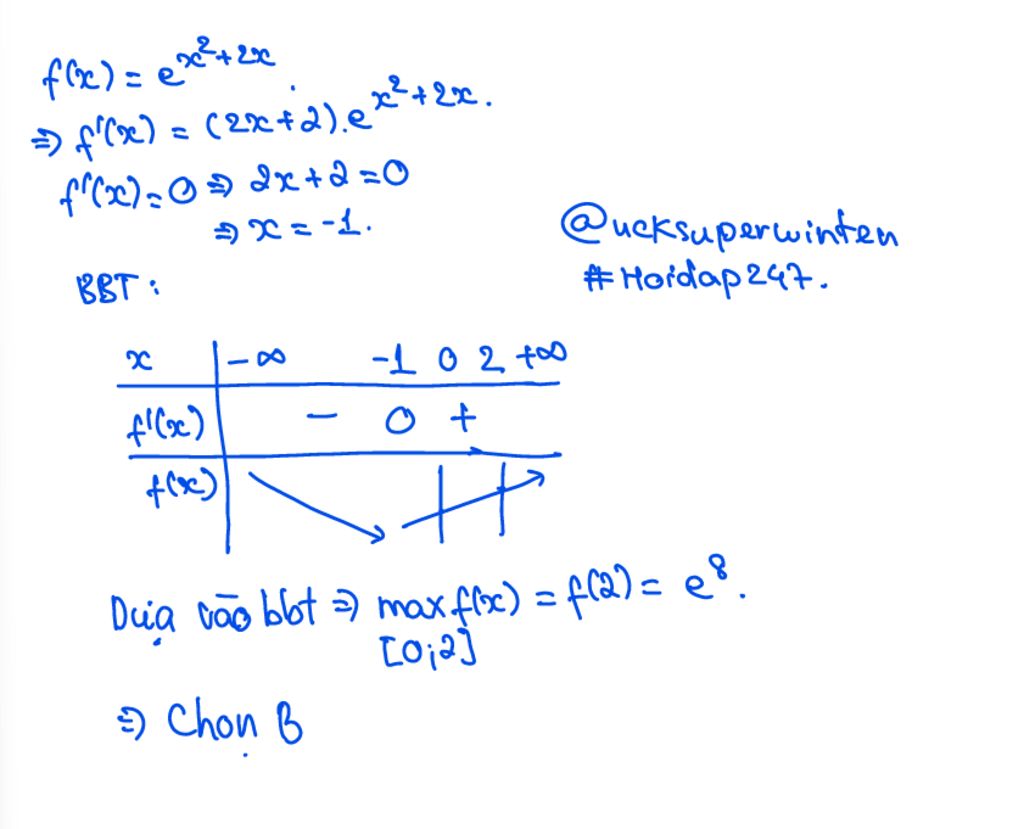 f(x) = e^{x^2+2x}
⇒ f'(x) = (2x+2).e^{x^2+2x}.
f'(x)=0 ⇒ 2x+2=0
⇒ x = -1.
@ucksuperwinten
#Hoidap247.
BBT:
x -∞ -1 0 2 +∞
f'(x) - 0 +
f(x)
Dựa vào bbt ⇒ max f(x) = f(2) = e^8.
[0;2]
⇒ Chọn B